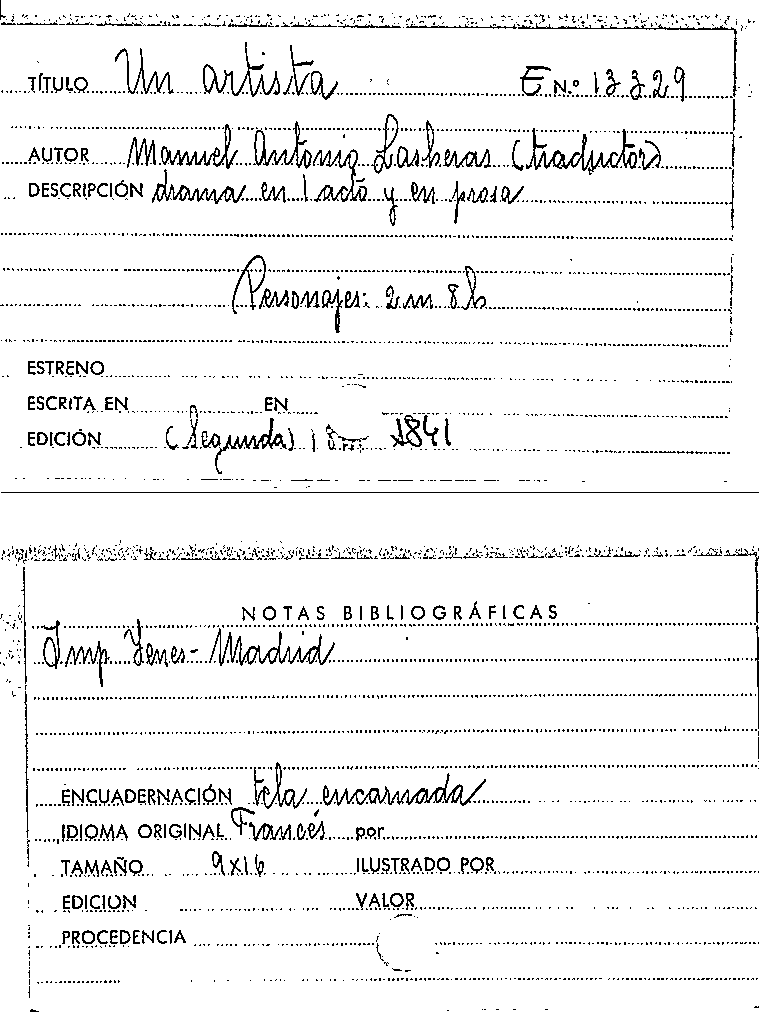 TÍTULO Un artista E N.º 13329
AUTOR Manuel Antonio Lasheras (traductor)
DESCRIPCIÓN drama en 1 acto y en prosa
Personajes: 2 m 8 h
ESTRENO
ESCRITA EN EN
EDICIÓN (Segunda) 1841
NOTAS BIBLIOGRÁFICAS
Imp Yenes - Madrid
ENCUADERNACIÓN tela encarnada
IDIOMA ORIGINAL Francés por
TAMAÑO 9x16 ILUSTRADO POR
EDICION VALOR
PROCEDENCIA